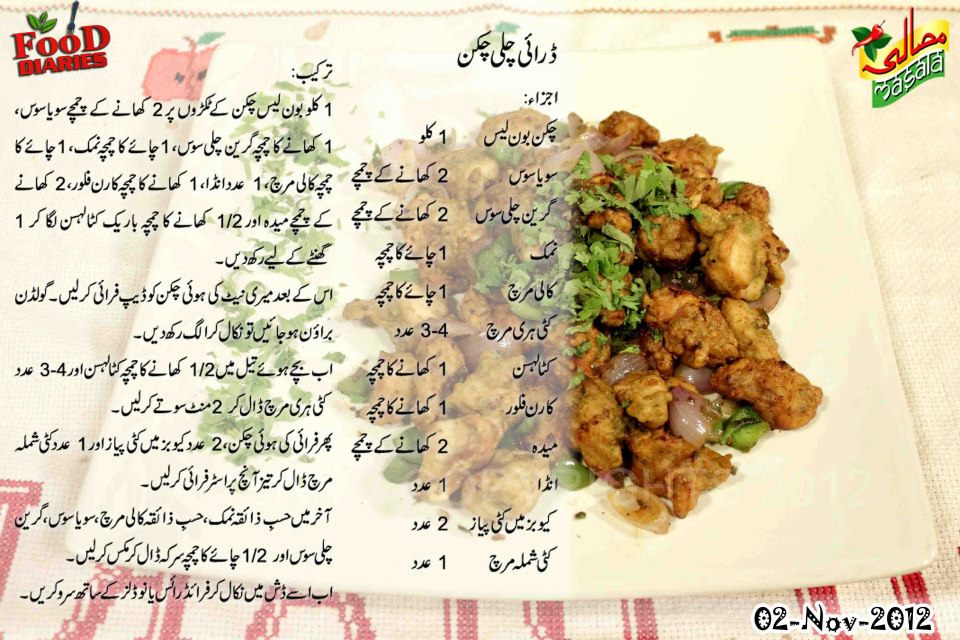 FOOD
DIARIES
مصالحہ
masala
ڈرائی چلی چکن
اجزاء:
چکن بون لیس 1 کلو
سویا سوس 2 کھانے کے چمچے
گرین چلی سوس 2 کھانے کے چمچے
نمک 1 چائے کا چمچہ
کالی مرچ 1 چائے کا چمچہ
کٹی ہری مرچ 3-4 عدد
کٹا لہسن 1 کھانے کا چمچہ
کارن فلور 1 کھانے کا چمچہ
میدہ 2 کھانے کے چمچے
انڈا 1 عدد
کیوبز میں کٹی پیاز 2 عدد
کٹی شملہ مرچ 1 عدد
ترکیب:
1 کلو بون لیس چکن کے ٹکڑوں پر 2 کھانے کے چمچے سویا سوس،
1 کھانے کا چمچہ گرین چلی سوس، 1 چائے کا چمچہ نمک، 1 چائے کا
چمچہ کالی مرچ، 1 عدد انڈا، 1 کھانے کا چمچہ کارن فلور، 2 کھانے
کے چمچے میدہ اور 1/2 کھانے کا چمچہ باریک کٹا لہسن لگا کر 1
گھنٹے کے لیے رکھ دیں۔
اس کے بعد میری نیٹ کی ہوئی چکن کو ڈیپ فرائی کر لیں۔ گولڈن
براؤن ہو جائیں تو نکال کر الگ رکھ دیں۔
اب بچے ہوئے تیل میں 1/2 کھانے کا چمچہ کٹا لہسن اور 3-4 عدد
کٹی ہری مرچ ڈال کر 2 منٹ سوتے کر لیں۔
پھر فرائی کی ہوئی چکن، 2 عدد کیوبز میں کٹی پیاز اور 1 عدد کٹی شملہ
مرچ ڈال کر تیز آنچ پر اسٹر فرائی کر لیں۔
آخر میں حسب ذائقہ نمک، حسب ذائقہ کالی مرچ، سویا سوس، گرین
چلی سوس اور 1/2 چائے کا چمچہ سرکہ ڈال کر مکس کر لیں۔
اب اسے ڈش میں نکال کر فرائڈ رائس یا نوڈلز کے ساتھ سرو کریں۔
02-Nov-2012